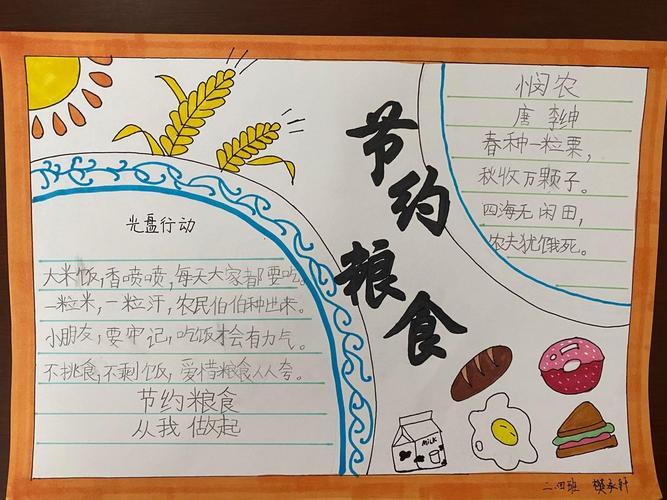 节约粮食
悯农
唐 李绅
春种一粒粟,
秋收万颗子。
四海无闲田,
农夫犹饿死。
光盘行动
大米饭,香喷喷,每天大家都要吃。
一粒米,一粒汗,农民伯伯种出来。
小朋友,要牢记,吃饭才会有力气。
不挑食,不剩饭,爱惜粮食人人夸。
节约粮食
从我做起
MILK
二.四班